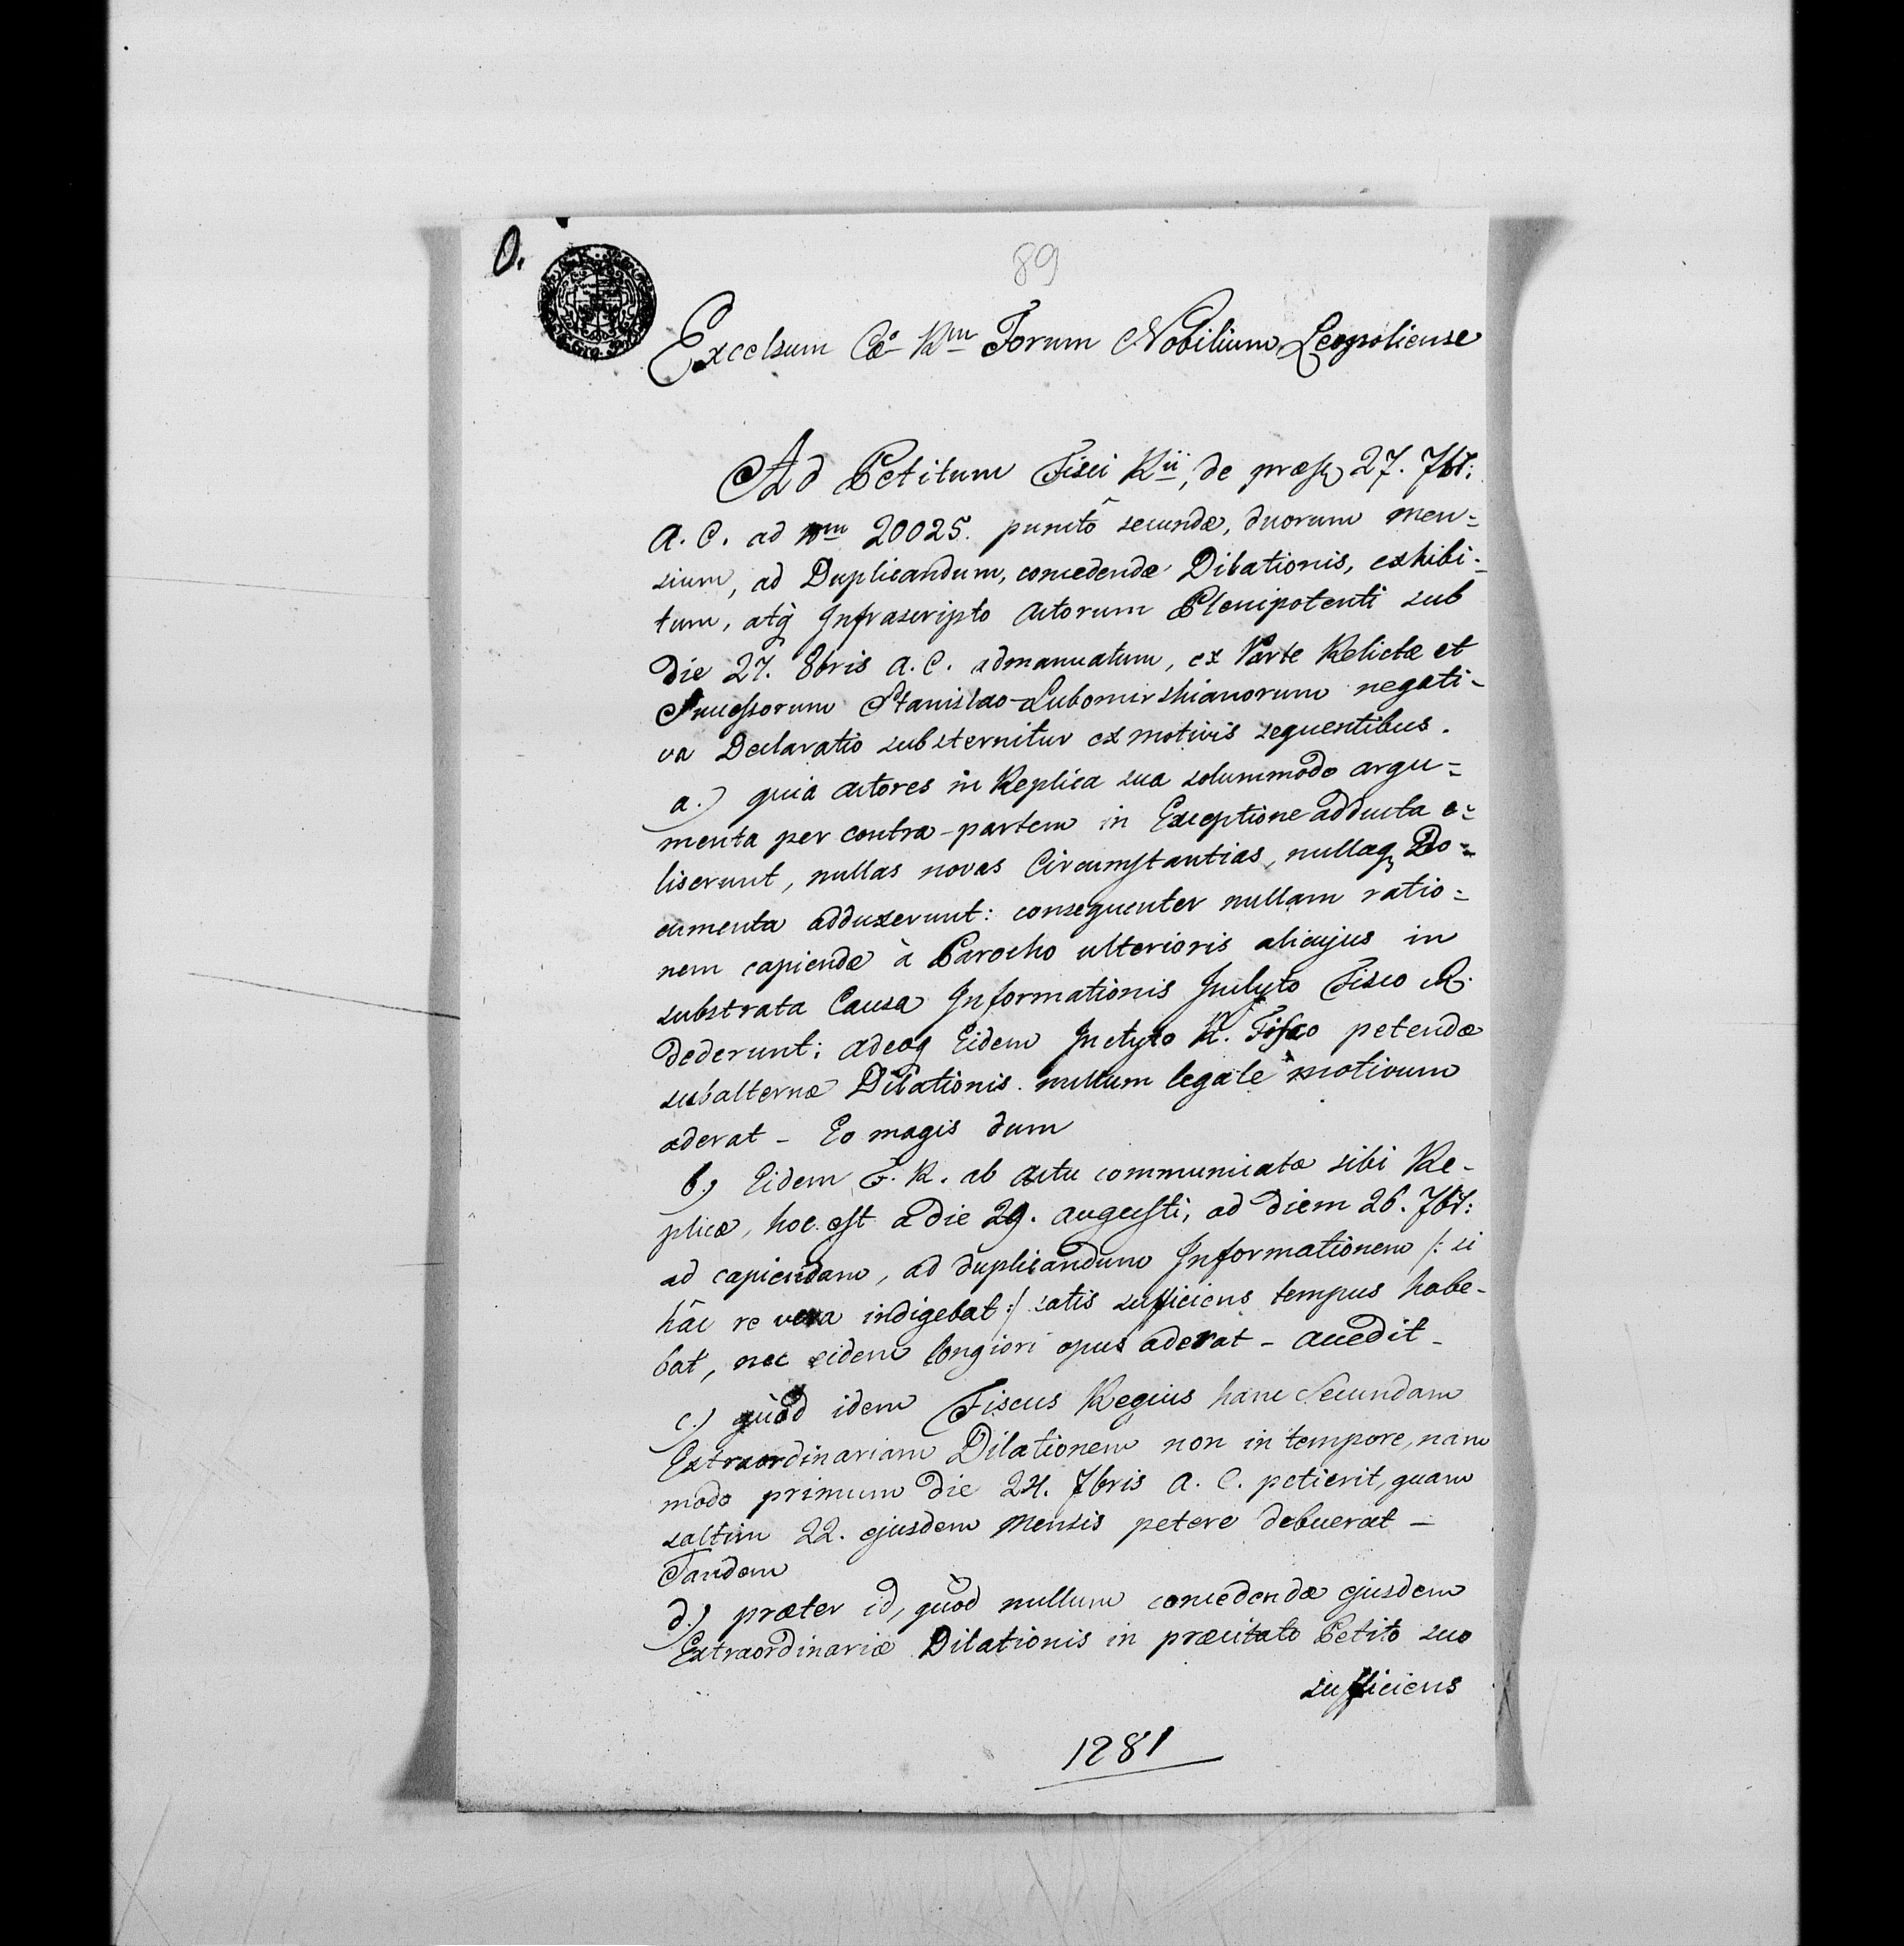 O.
89
Excelsum Cæº Rm Forum Nobilium Leopoliense
Ad Petitum Fisci Rii, de præs 27. 7br:
A. C. ad Nm 20025. punctô secundæ, duorum men=
sium, ad Duplicandum, concedendæ Dilationis, exhibi=
tum, atq Infrascripto Actorum Plenipotenti sub
Die 27. 8bris A. C. admanuatum, ex Parte Relictæ et
Successorum Stanislao-Lubomirskianorum negati-
va Declaratio substernitur ex motivis sequentibus.
a.) quia Actores in Replica sua solummodo argu=
menta per contra-partem in Exceptione adducta e=
liserunt, nullas novas Circumstantias, nullaq Do=
cumenta adduxerunt: consequenter nullam ratio=
nem capiendæ à Parocho ulterioris alicujus in
substrata Causa Informationis Inclyto Fisco R.
dederunt; adeoq Eidem Inclyto R. Fisco petendæ
subalternæ Dilationis nullum legale motivum
aderat – Eo magis dum
b.) Eidem F. R. ab actu communicatæ sibi Re-
plicæ, hoc est a die 29. Augusti, ad Diem 26. 7br:
ad capiendam, ad duplicandum Informationem /: si
hâc re vera indigebat :/ satis sufficiens tempus habe-
bat, nec eidem longiori opus aderat – accedit –
c.) quòd idem Fiscus Regius hanc Secundam
Extraordinariam Dilationem non in tempore, nam
modo primum die 24. 7bris A. C. petierit, quam
saltim 22. ejusdem Mensis petere debuerat –
Tandem
d.) præter id, quòd nullum concedendæ ejusdem
Extraordinariæ Dilationis in præcitato Petito suo
sufficiens
1281